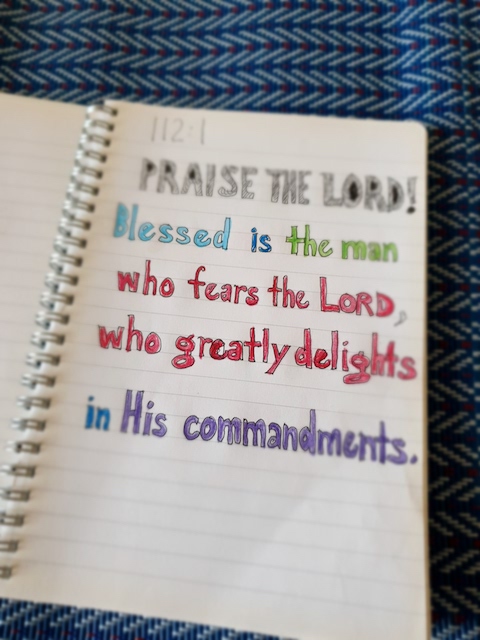 112:1
PRAISE THE LORD!
Blessed is the man
who fears the LORD,
who greatly delights
in His commandments.